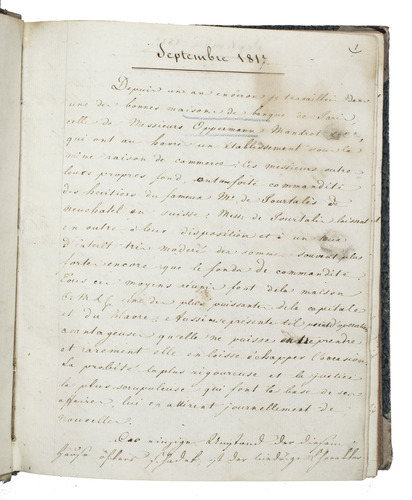 1
Septembre 181
Depuis un an environ je travaille dans
une des bonnes maisons de banque de Paris
celle de Messieurs Oppermann Mandrot
qui ont au havre un établissement sous la
même raison de commerce; ces messieurs outre
leurs propres fond, ont une forte commandite
des héritiers du fameux Mr. de Pourtalès de
Neuchatel en Suisse; Messrs de Pourtalès laissent
en outre à leur disposition et à un taux
d'intérêt très modéré des sommes souvent plus
fortes encore que le fonds de commandite.
Tous ces moyens réunis font de la maison
une des plus puissantes de la capitale
et du Havre; aussi se présente t'il
avantageuse qu'elle ne puisse entreprendre
et rarement elle en laisse échapper l'occasion
La probité la plus rigoureuse et la justice
la plus scrupuleuse qui font la base de ses
affaires, lui en attirent journellement de
nouvelles.
Das einzige Umstand der diesem
Hause ist der